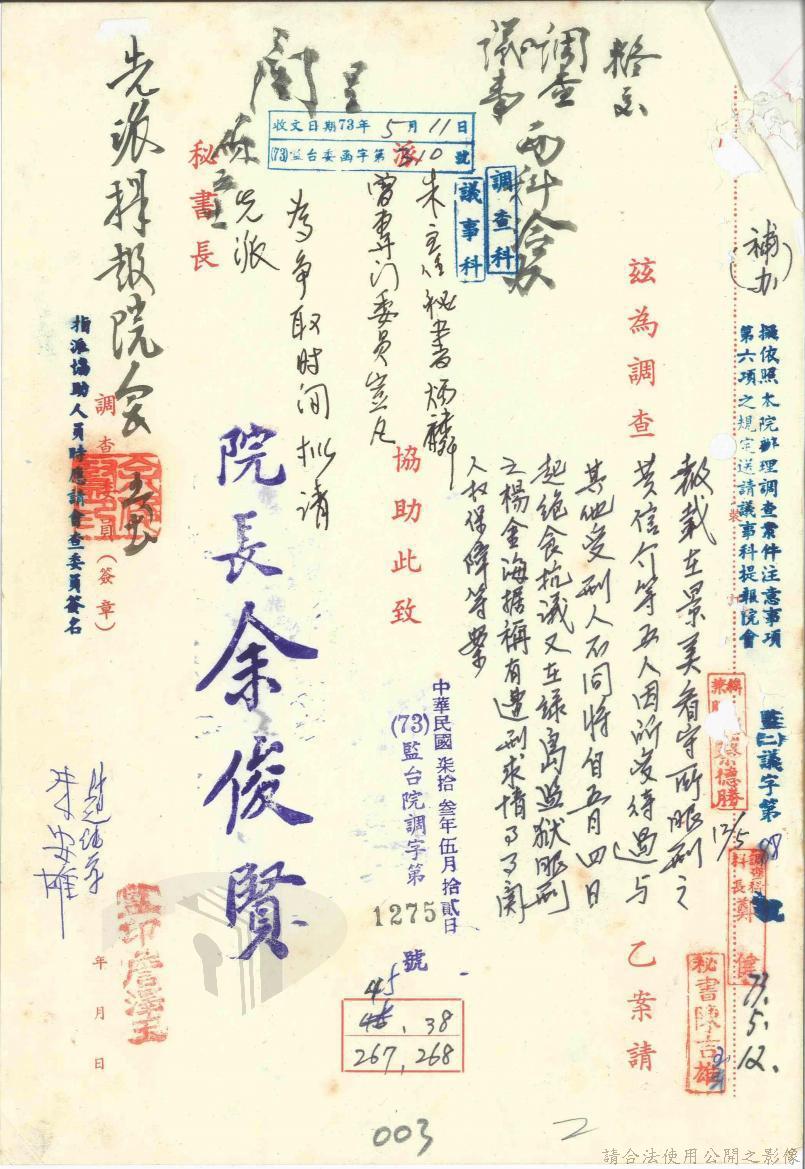 擬依照本院辦理調查案件注意事項
第六項之規定送請議事科提報院會
(補办)
監(二)議字第
號
12/5
73.
5.
12.
秘書陳吉雄
茲為調查
報載在景美看守所服刑之
黃信介等五人因所受待遇与
其他受刑人不同將自五月四日
起絶食抗議又在綠島監獄服刑
之楊金海据稱有遭刑求情事事関
人权保障等案
乙案請
調查
議事
兩科會办
調查科
議事科
朱主任秘書炳麟
曾專门委員
協助此致
秘書長
呈
閱
收文日期73年5月11日
(73)監台委函字第 號
為爭取时间拟請
先派
先派後報院會
中華民國柒拾叁年伍月拾貳日
(73)監台院調字第
1275
號
45
38
267,268
院長余俊賢
調查委員(簽章)
指派協助人員時應請調查委員簽名
朱安雄
監印詹澤玉
年月日
003
2
請合法使用公開之影像